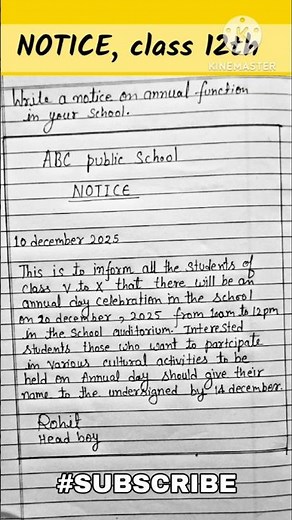 NOTICE, class 12th
KINEMASTER
Write a notice on annual function
in your school.
ABC public School
NOTICE
10 december 2025
This is to inform all the students of
class V to X that there will be an
annual day celebration in the school
on 20 december, 2025 from 10am to 12pm
in the School auditorium. Interested
students those who want to participate
in various cultural activities to be
held on Annual day should give their
name to the undersigned by 14 december.
Rohit
Head boy
#SUBSCRIBE